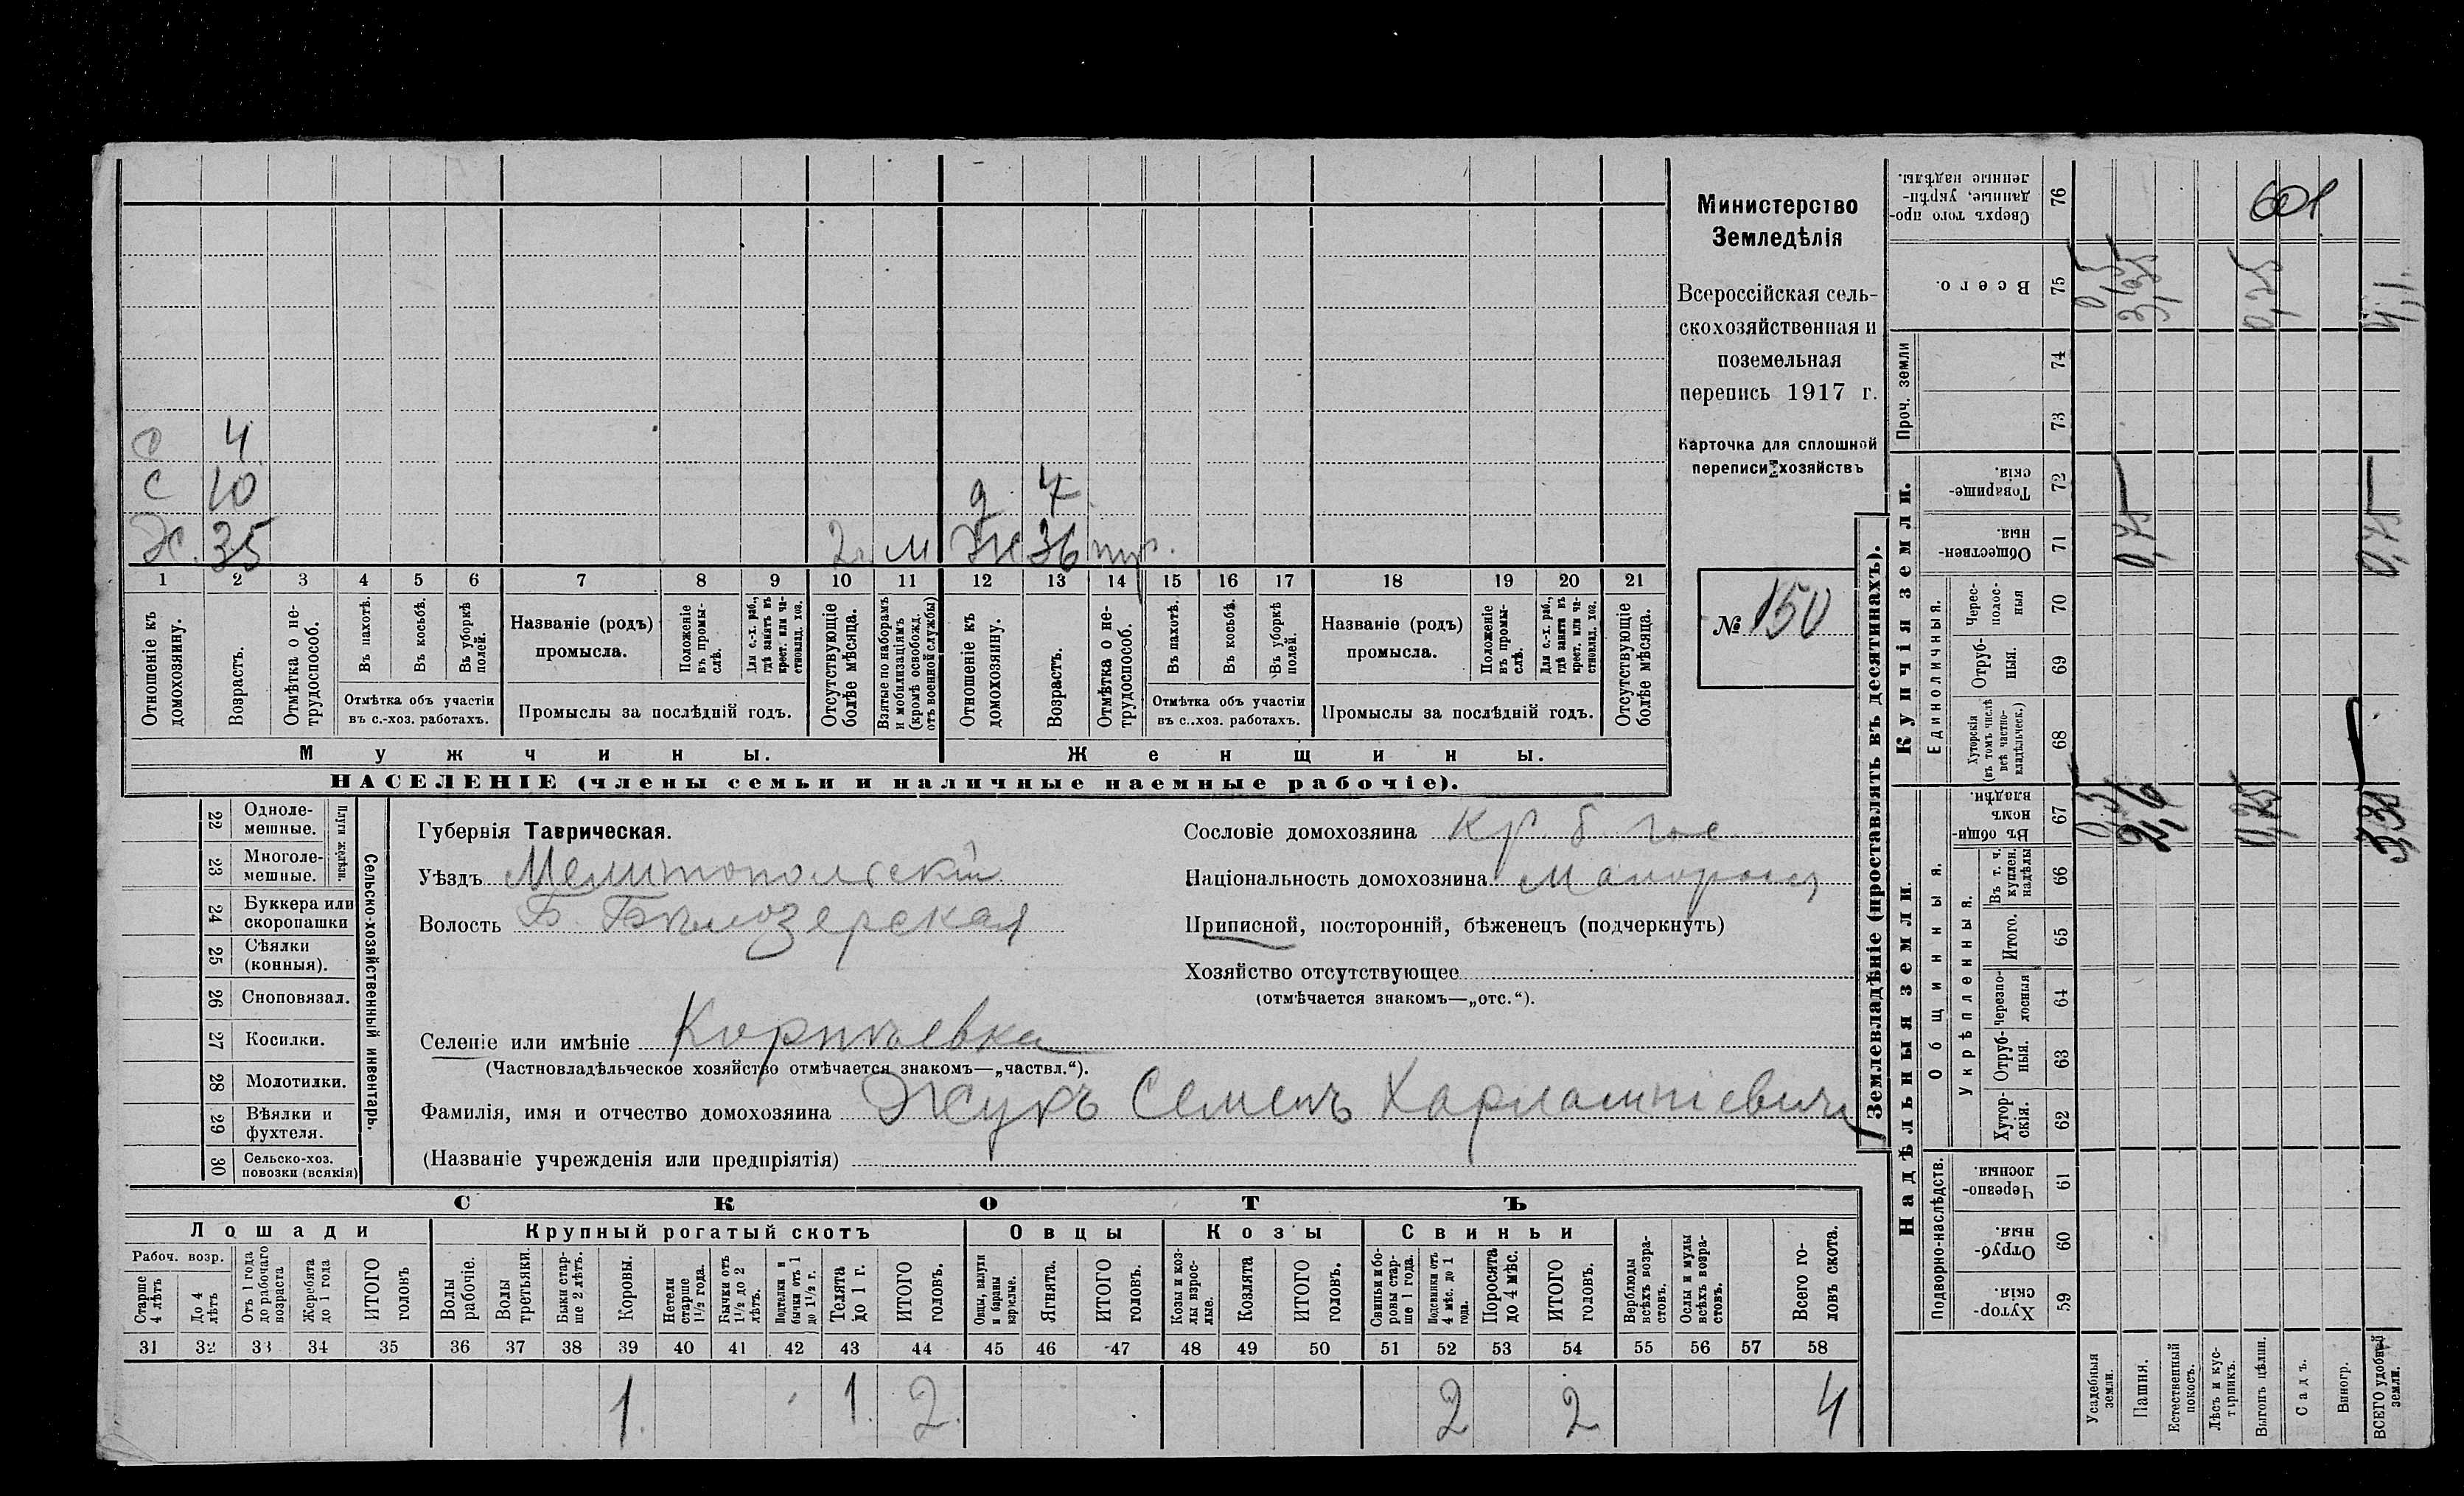 Министерство
Земледѣлія
Всероссійская сель-
скохозяйственная и
поземельная
перепись 1917 г.
Карточка для сплошной
переписи хозяйствъ
№ 150
С 4
С 10
Ж. 35 2 г. м
д 4
Ж 36
1 2 3 4 5 6 7 8 9 10 11 12 13 14 15 16 17 18 19 20 21
Отношеніе къ домохозяину.
Возрастъ.
Отмѣтка о не-трудоспособ.
Въ пахотѣ.
Въ косьбѣ.
Въ уборкѣ полей.
Отмѣтка объ участіи
въ с.-хоз. работахъ.
Названіе (родъ)
промысла.
Положеніе въ промы-слѣ.
Для с.-х. раб., гдѣ занятъ въ крест. или ча-стновлад. хоз.
Промыслы за послѣдній годъ.
Отсутствующіе болѣе мѣсяца.
Взятые по наборамъ и мобилизаціямъ (кромѣ освобожд. отъ военной службы)
Отношеніе къ домохозяину.
Возрастъ.
Отмѣтка о не-трудоспособ.
Въ пахотѣ.
Въ косьбѣ.
Въ уборкѣ полей.
Отмѣтка объ участіи
въ с..хоз. работахъ.
Названіе (родъ)
промысла.
Положеніе въ промы-слѣ.
Для с.-х. раб., гдѣ занята въ крест. или ча-стновлад. хоз.
Промыслы за послѣдній годъ.
Отсутствующіе болѣе мѣсяца.
Мужчины.
Женщины.
НАСЕЛЕНІЕ (члены семьи и наличные наемные рабочіе).
22 Одноле-мешные.
23 Многоле-мешные.
Плуги желѣзн.
24 Буккера или скоропашки
25 Сѣялки (конныя).
26 Сноповязал.
27 Косилки.
28 Молотилки.
29 Вѣялки и фухтеля.
30 Сельско-хоз. повозки (всякія)
Сельско-хозяйственный инвентарь.
Губернія Таврическая.
Уѣздъ Мелитопольскій
Волость Б. Бѣлозерская
Сословіе домохозяина Кр. б. гос
Національность домохозяина Малоросъ
Приписной, посторонній, бѣженецъ (подчеркнуть)
Хозяйство отсутствующее
(отмѣчается знакомъ—„отс.“).
Селеніе или имѣніе
(Частновладѣльческое хозяйство отмѣчается знакомъ—„частвл.“).
Фамилія, имя и отчество домохозяина Жукъ Семенъ Харлампіевичъ
(Названіе учрежденія или предпріятія)
СКОТЪ
Лошади
Крупный рогатый скотъ
Овцы
Козы
Свиньи
Рабоч. возр.
Старше 4 лѣтъ
До 4 лѣтъ
Отъ 1 года до рабочаго возраста
Жеребята до 1 года
ИТОГО головъ
Волы рабочіе.
Волы третьяки.
Быки стар-ше 2 лѣтъ.
Коровы.
Нетели старше 1½ года.
Бычки отъ 1½ до 2 лѣтъ.
Подтелки и бычки отъ 1 до 1½ г.
Телята до 1 г.
ИТОГО головъ.
Овцы, валухи и бараны взрослые.
Ягнята.
ИТОГО головъ.
Козы и коз-лы взрос-лые.
Козлята
ИТОГО головъ.
Свиньи и бо-ровы стар-ше 1 года.
Подсвинки отъ 4 мѣс. до 1 года.
Поросята до 4 мѣс.
ИТОГО головъ.
Верблюды всѣхъ возра-стовъ.
Ослы и мулы всѣхъ возра-стовъ.
Всего го-ловъ скота.
31 32 33 34 35 36 37 38 39 40 41 42 43 44 45 46 47 48 49 50 51 52 53 54 55 56 57 58
1. 1. 2. 2 2 4
Землевладѣніе (проставлять въ десятинахъ).
Надѣльныя земли.
Купчія земли.
Проч. земли
Подворно-наслѣдств.
Общинныя.
Укрѣпленныя.
Единоличныя.
Хутор-скія. 59
Отруб-ныя. 60
Черезпо-лосныя. 61
Хутор-скія. 62
Отруб-ныя. 63
Черезпо-лосныя 64
Итого. 65
Въ т. ч. куплен. надѣлы 66
Въ общи-номъ владѣн. 67
Хуторскія (въ томъ числѣ всѣ частно-владѣльческ.) 68
Отруб-ныя. 69
Черес-полос-ныя 70
Обществен-ныя. 71
Товарище-скія. 72
73 74
Всего. 75
Сверхъ того про-данные, укрѣп-ленные надѣлы. 76
Усадебныя земли.
Пашня.
Естественный покосъ.
Лѣсъ и кус-тарникъ.
Выгонъ цѣлин.
Садъ.
Виногр.
ВСЕГО удобной земли.
601
0,5 3,35 0,25 4,1.
0,75 0,75
0,5 2,6 0,25 3,35